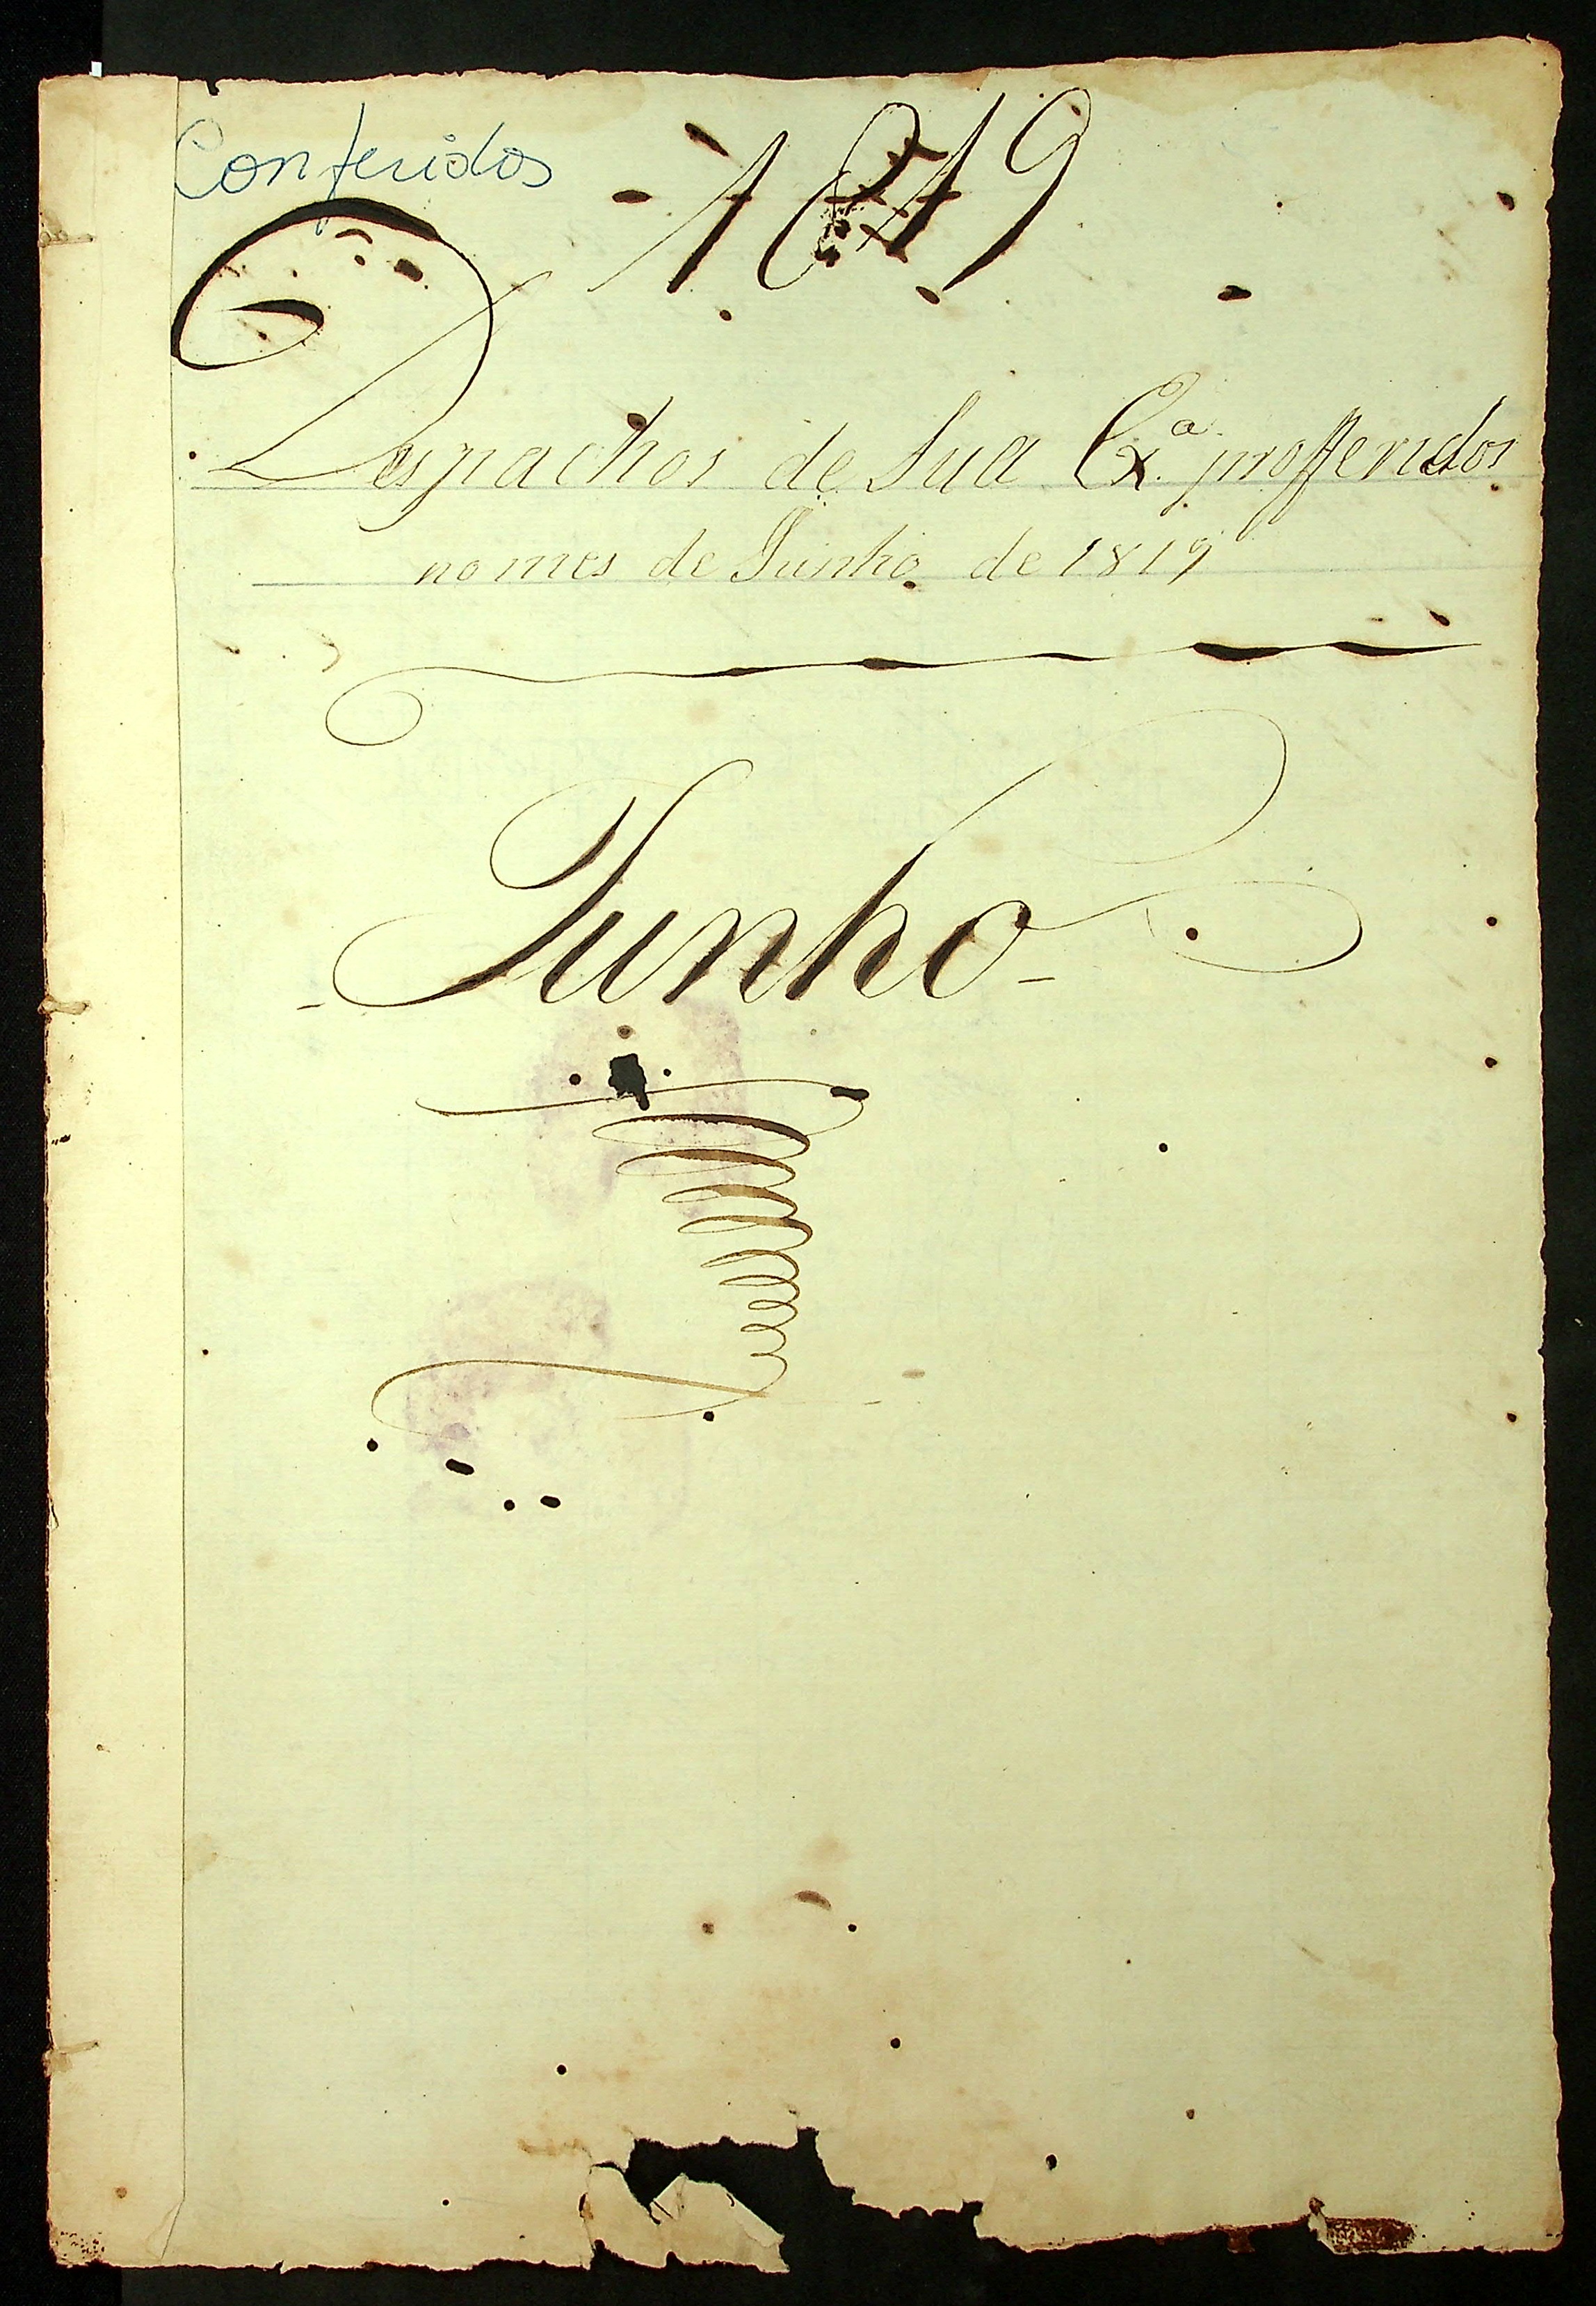 Conferidos
- 1819
Despachos de Sua Exª. profferidos
no mes de Junho de 1819
- Junho -